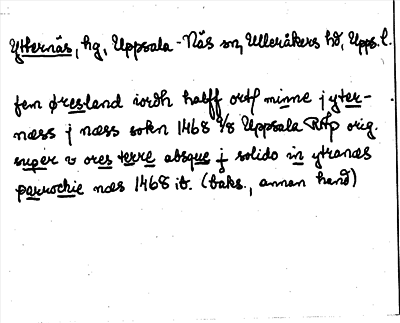 Ytternäs, hg, Uppsala-Näs sn, Ulleråkers hd, Upps. l.
fem øresland iordh halff ortf minne j yter-
næss j næss sokn 1468 2/8 Uppsala RAp orig.
super v ores terre absque j solido in ytranæs
parrochie næs 1468 ib. (baks., annan hand)